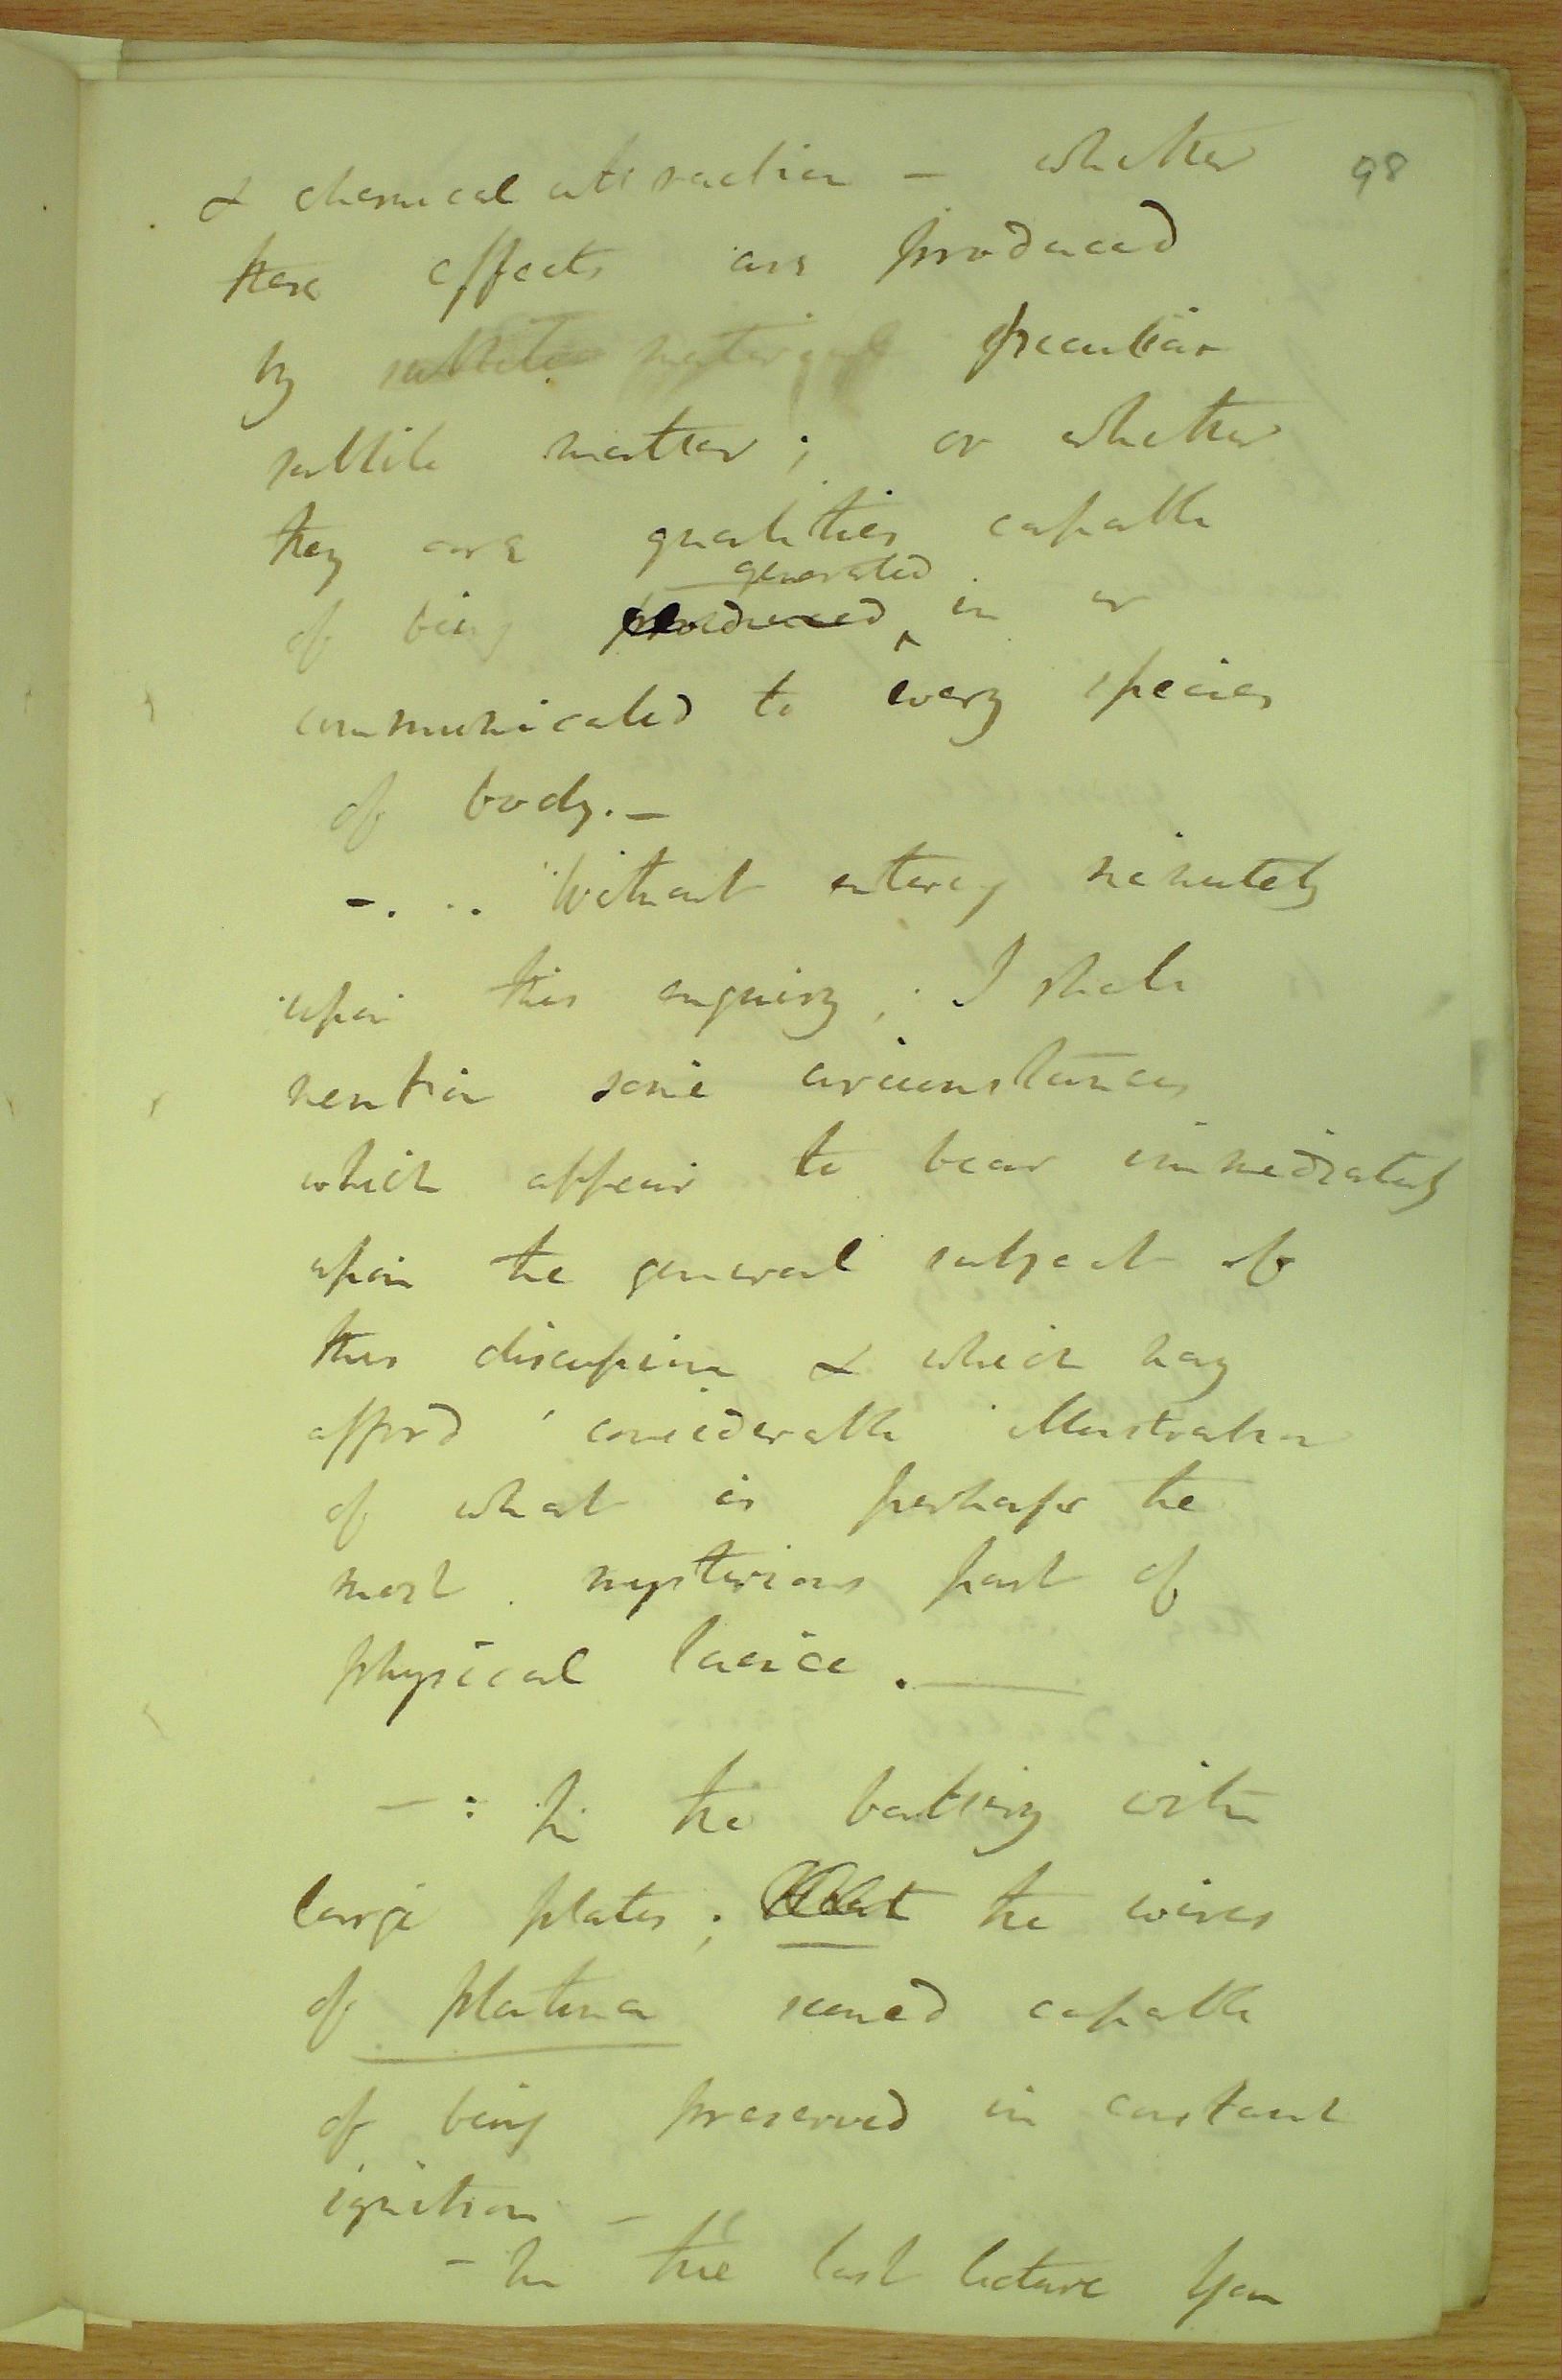 98
& chemical attraction - whether
these effects are produced
by subtile peculiar
subtile matter; or whether
they are qualities capable
generated
of being produced ^ in or
communicated to every species
of body. -
-. .. Without entering minutely
upon this enquiry; I shall
mention some circumstances
which appear to bear immediately
upon the general subject of
this discussion & which may
afford considerable illustration
of what is perhaps the
most mysterious part of
physical science. -
-: In the battery with
large plates; the wires
of platina seemed capable
of being preserved in constant
ignition -
- In the last lecture you